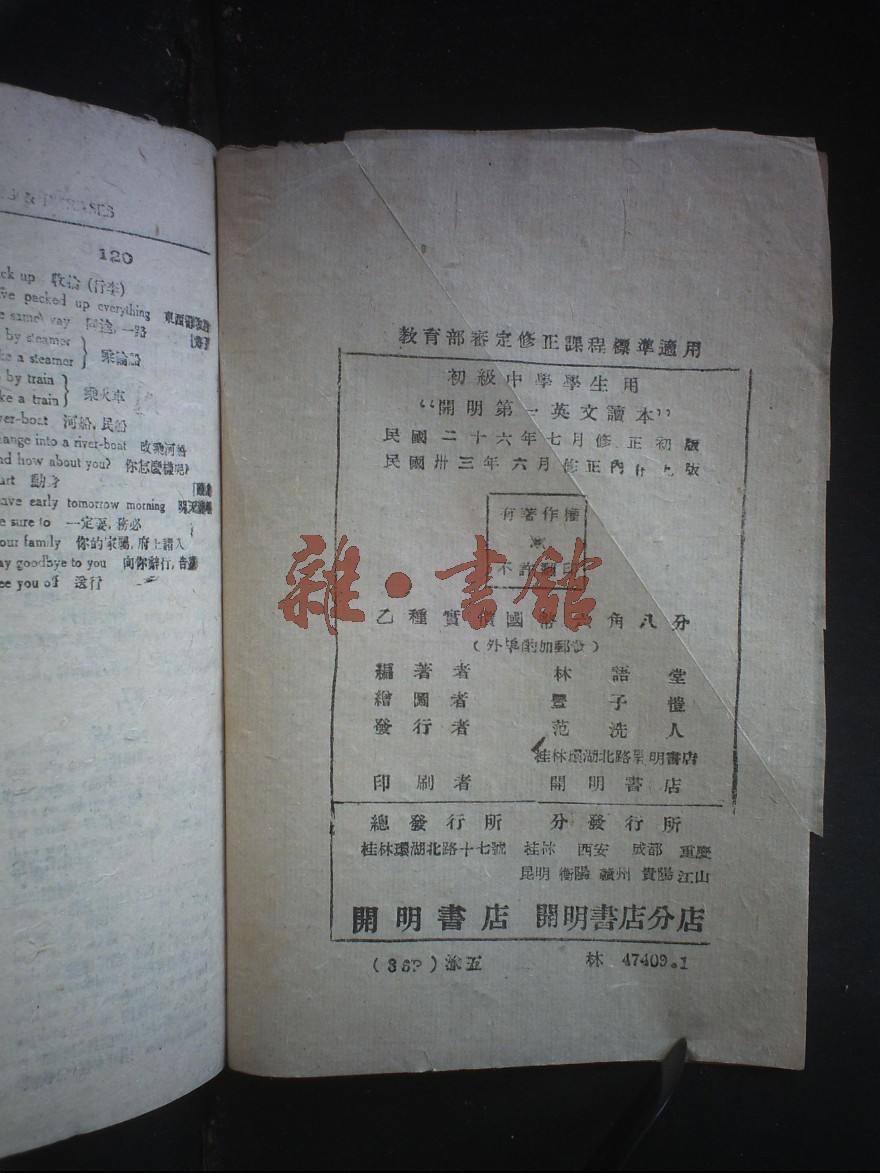 & PHRASES
120
ck up 收拾 (行李)
ve packed up everything 東西都
e same) way 同途, 一路
by steamer
ke a steamer 乘輪船
by train
ke a train 乘火車
ver-boat 河船, 民船
ange into a river-boat 改乘河船
nd how about you? 你怎麼樣呢?
art 動身
ave early tomorrow morning
e sure to 一定要, 務必
our family 你的家屬, 府上諸人
ay goodbye to you 向你辭行, 告
ee you off 送行
教育部審定修正課程標準適用
初級中學學生用
“開明第一英文讀本”
民國二十六年七月修正初版
民國卅三年六月修正內版
有著作權
不許翻印
乙種實價國幣角八分
(外埠酌加郵費)
編著者 林語堂
繪圖者 豐子愷
發行者 范洗人
桂林環湖北路開明書店
印刷者 開明書店
總發行所 分發行所
桂林環湖北路十七號 桂林 西安 成都 重慶
昆明 衡陽 贛州 貴陽 江山
開明書店 開明書店分店
林 47409.1
雜·書館